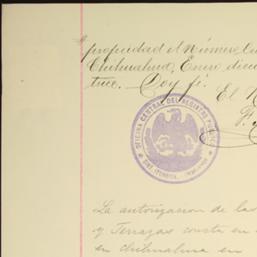 propiedad el Número
Chihuahua, Enero
trece. Doy fé.
El
OFICINA CENTRAL DEL REGISTRO
La autorizacion de las
y Terrazas consta en
en chihuahua en